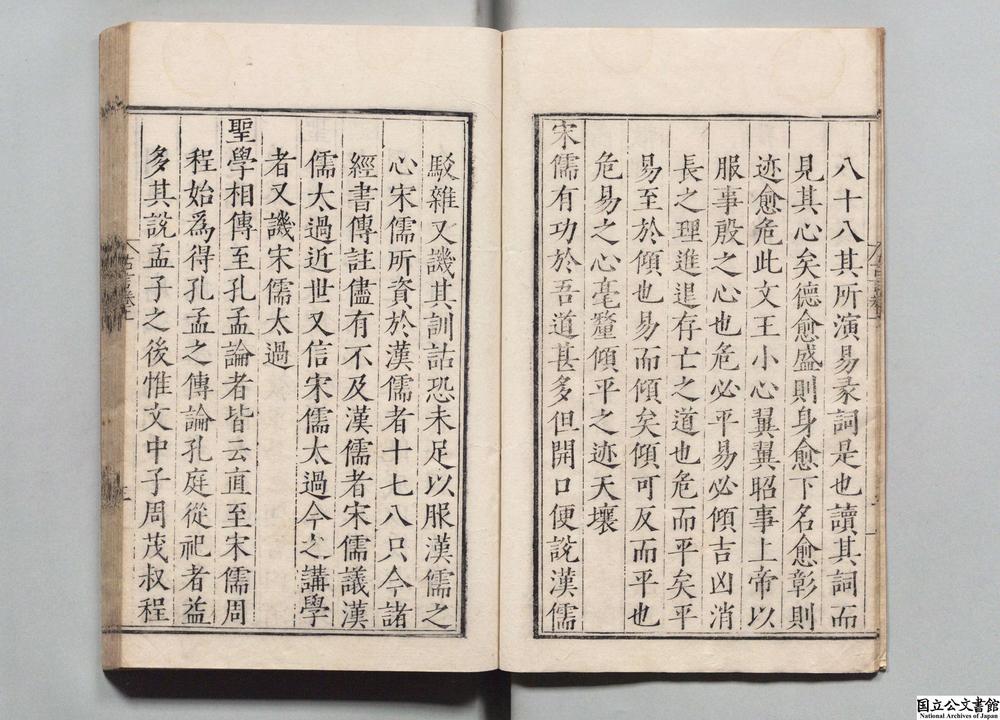 八十八其所演易彖詞是也讀其詞而
見其心矣德愈盛則身愈下名愈彰則
迹愈危此文王小心翼翼昭事上帝以
服事殷之心也危必平易必傾吉凶消
長之理進退存亡之道也危而平矣平
易至於傾也易而傾矣傾可反而平也
危易之心毫釐傾平之迹天壤
宋儒有功於吾道甚多但開口便說漢儒
駁雜又譏其訓詁恐未足以服漢儒之
心宋儒所資於漢儒者十七八只今諸
經書傳註儘有不及漢儒者宋儒議漢
儒太過近世又信宋儒太過今之講學
者又譏宋儒太過
聖學相傳至孔孟論者皆云直至宋儒周
程始爲得孔孟之傳論孔庭從祀者益
多其說孟子之後惟文中子周茂叔程
国立公文書館
National Archives of Japan